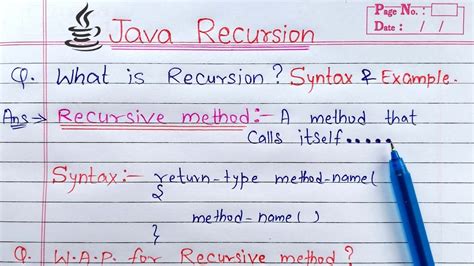 Java Recursion
Page No. :
Date : / /
Q. What is Recursion? Syntax & Example.
Ans → Recursive method:- A method that
calls itself.....
Syntax:- return-type method-name(
{
method-name( )
}
Q. W.A.P. for Recursive method?